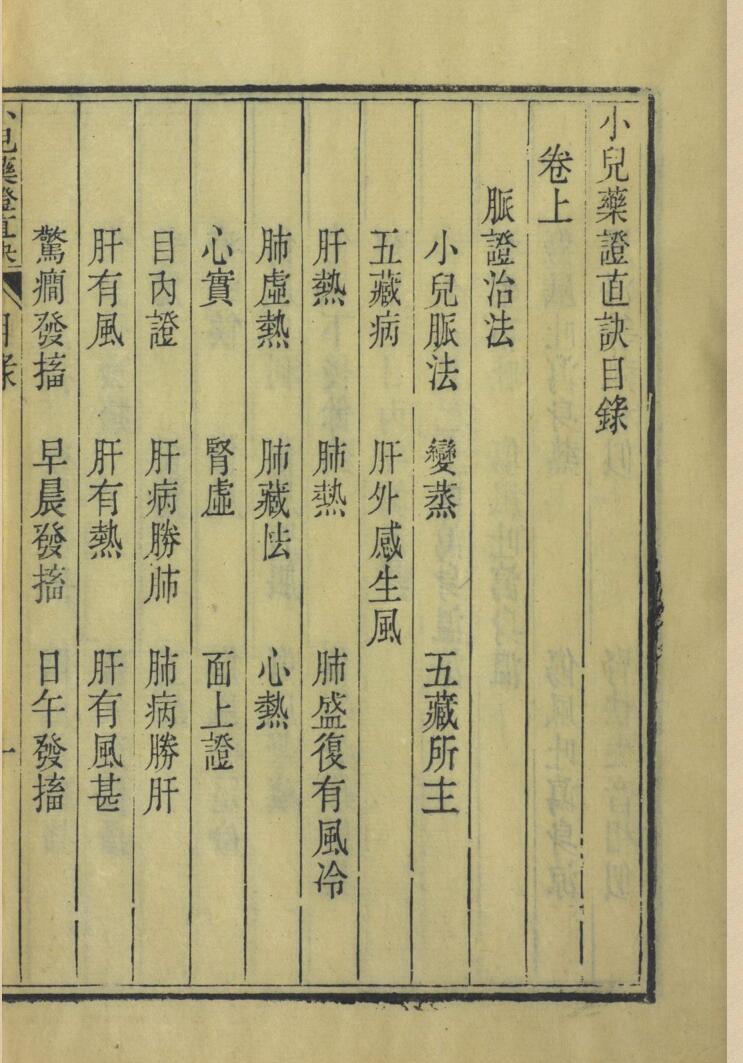 小兒藥證直訣目錄
卷上
脈證治法
小兒脈法　變蒸　五藏所主
五藏病　肝外感生風
肝熱　肺熱　肺盛復有風冷
肺虛熱　肺藏怯　心熱
心實　腎虛　面上證
目內證　肝病勝肺　肺病勝肝
肝有風　肝有熱　肝有風甚
驚癎發搐　早晨發搐　日午發搐
小兒藥證直訣　目錄　一